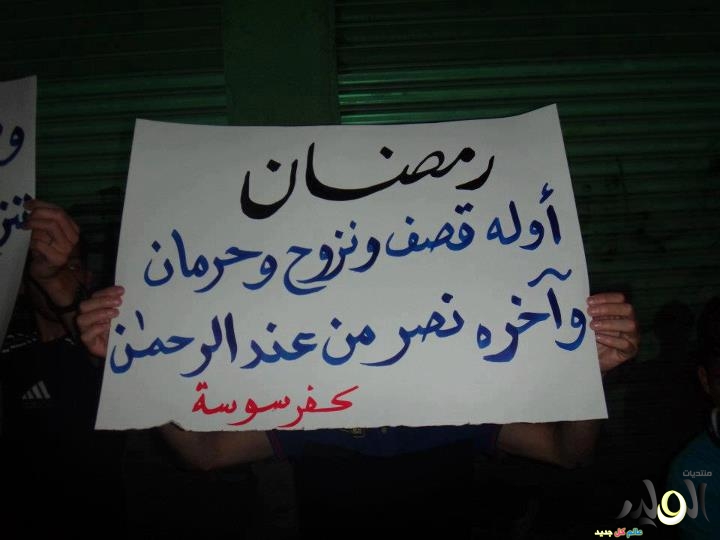 رمضان
أوله قصف ونزوح وحرمان
وآخره نصر من عند الرحمٰن
كفرسوسة
منتديات
عالم كل جديد